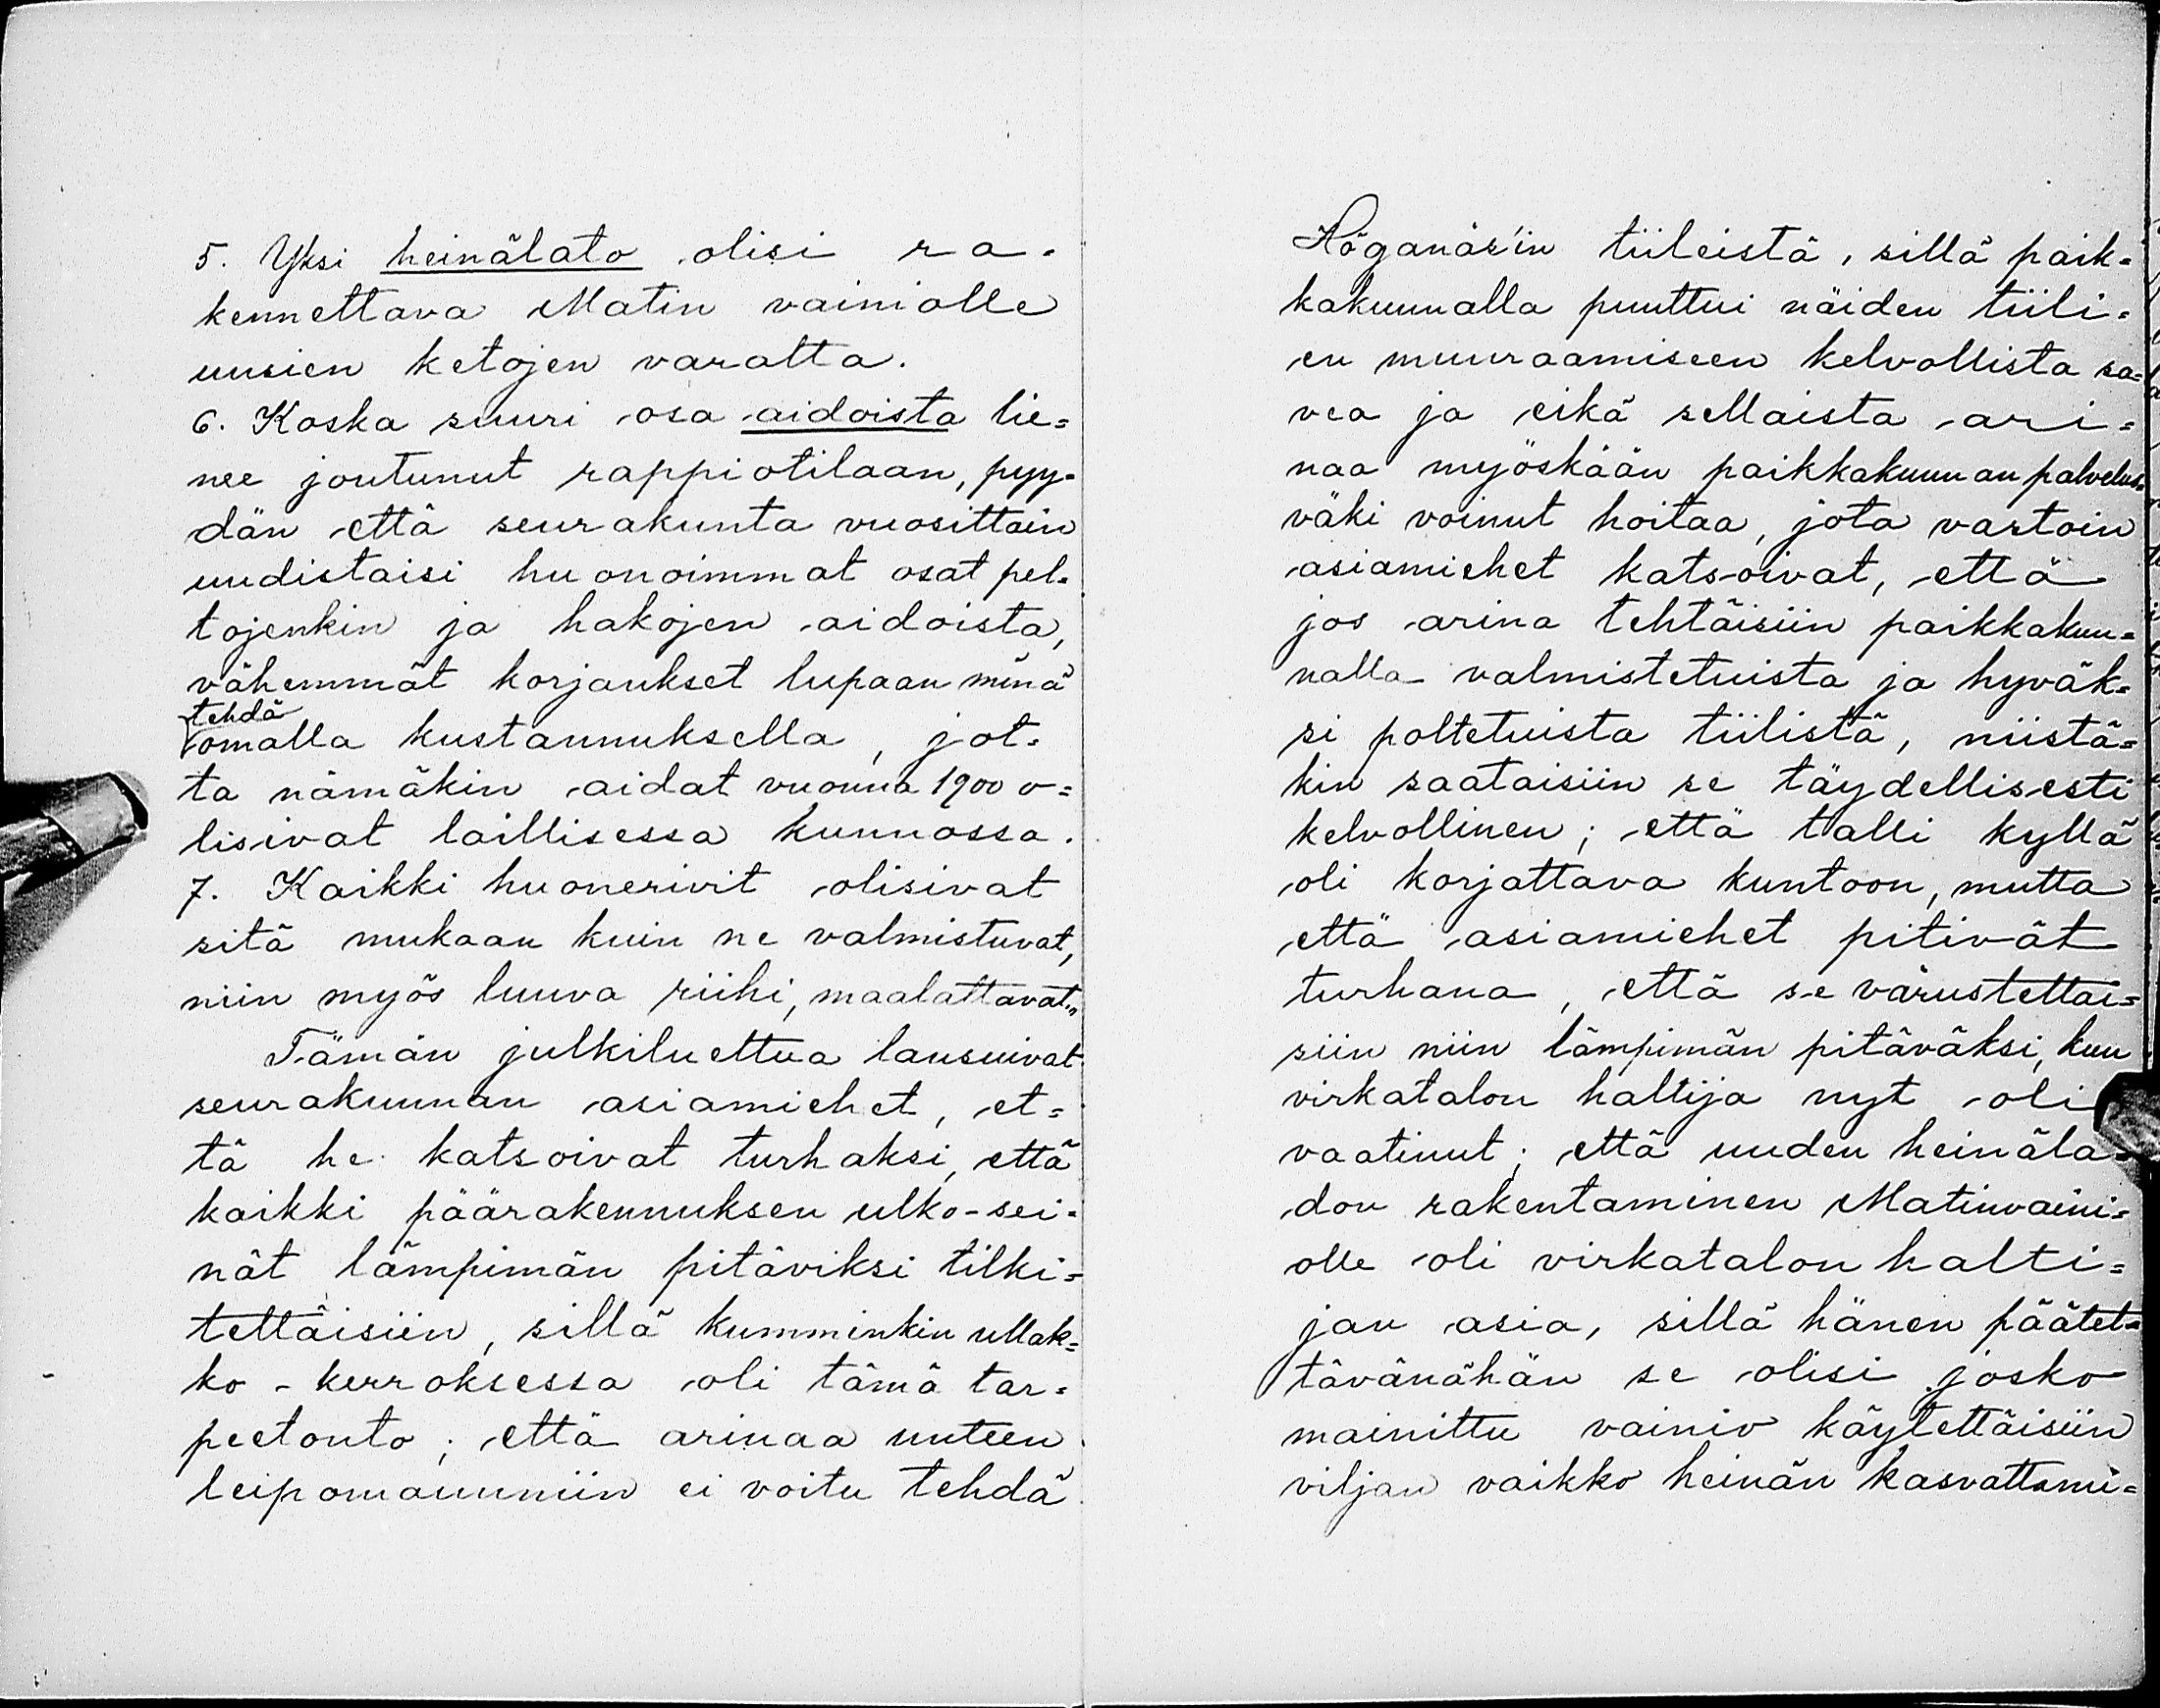 5. Yksi heinälato olisi ra-
kennettava Matin vainiolle
uusien ketojen varalta.
6. Koska suuri osa aidoista lie=
nee joutunut rappiotilaan, pyy-
dän että seurakunta vuosittain
uudistaisi huonoimmat osat pel-
tojenkin ja hakojen aidoista,
vähemmät korjaukset lupaan minä
tehdä
omalla kustannuksella, jot-
ta nämäkin aidat vuonna 1900 o=
lisivat laillisessa kunnossa.
7. Kaikki huonerivit olisivat
sitä mukaan kuin ne valmistuvat,
niin myös luuva riihi, maalattavat."
Tämän julkiluettua lausuivat
seurakunnan asiamiehet, et=
tä he katsoivat turhaksi, että
kaikki päärakennuksen ulko-sei-
nät lämpimän pitäviksi tilki=
tettäisiin, sillä kumminkin ullak=
ko-kerroksessa oli tämä tar=
peetonto; että arinaa uuteen
leipomauuniin ei voitu tehdä
Höganäs'in tiileistä, sillä paik=
kakunnalla puuttui näiden tiili-
en muuraamiseen kelvollista sa=
vea ja eikä sellaista ari=
naa myöskään paikkakunnan palvelus=
väki voinut hoitaa, jota vastoin
asiamiehet katsoivat, että
jos arina tehtäisiin paikkakun=
nalla valmistetuista ja hyväk=
si poltetuista tiilistä, niistä=
kin saataisiin se täydellisesti
kelvollinen; että talli kyllä
oli korjattava kuntoon, mutta
että asiamiehet pitivät
turhana, että se varustettai=
siin niin lämpimän pitäväksi, kuu
virkatalon haltija nyt oli
vaatinut; että uuden heinäla=
don rakentaminen Matinvaini=
olle oli virkatalon halti=
jan asia, sillä hänen päätet=
tävänähän se olisi josko
mainittu vainio käytettäisiin
viljan vaikko heinän kasvattami=